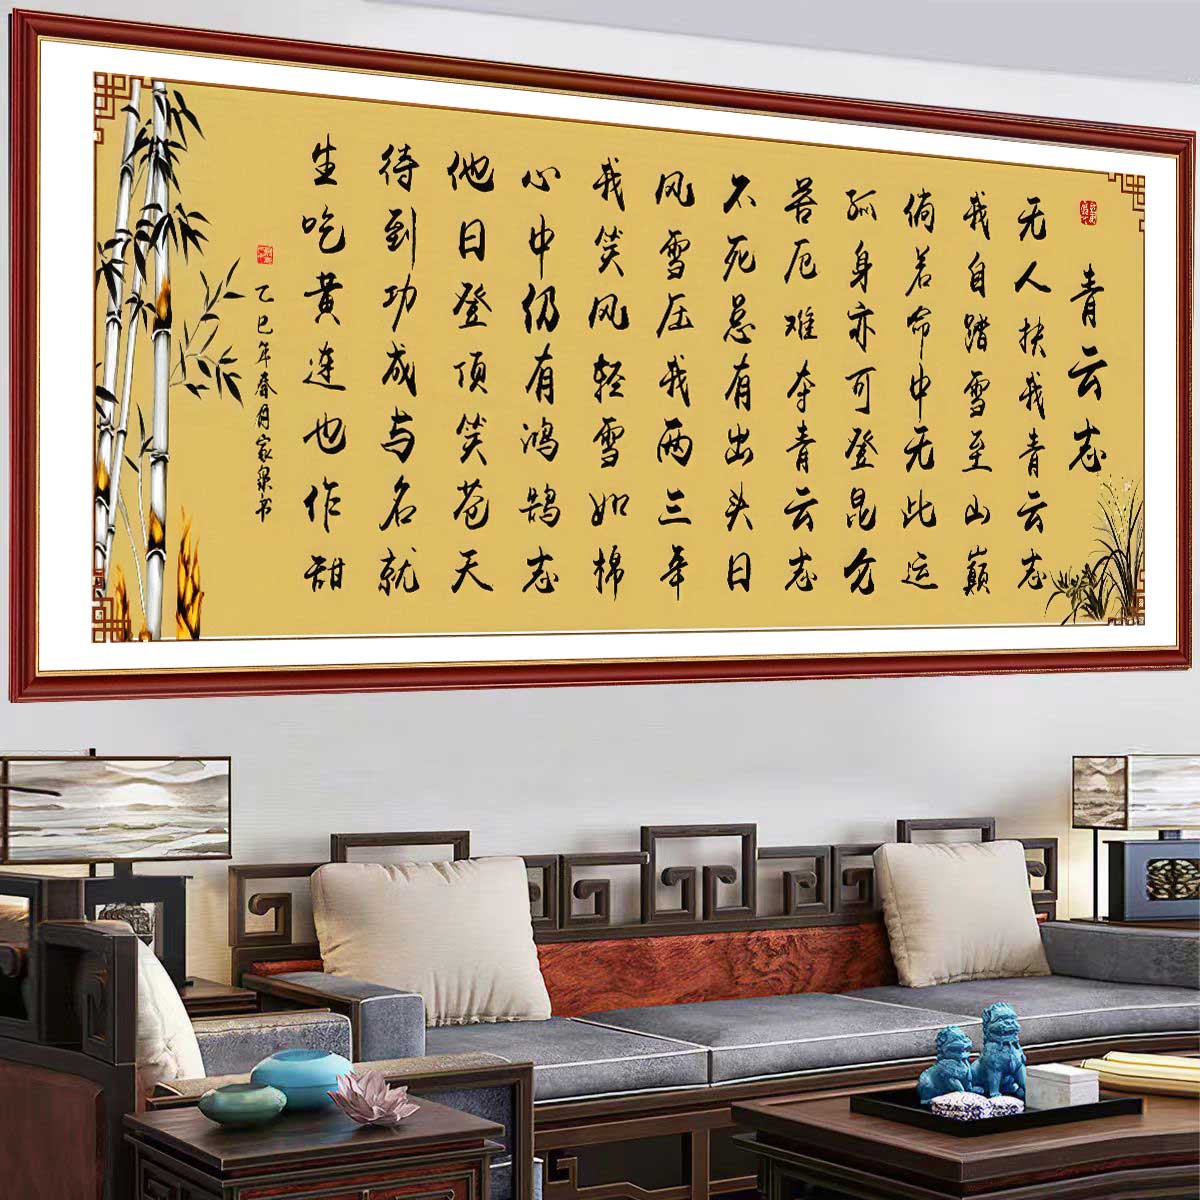 青云志
无人扶我青云志
我自踏雪至山巅
倘若命中无此运
孤身亦可登昆仑
苦厄难夺青云志
不死总有出头日
风雪压我两三年
我笑风轻雪如棉
心中仍有鸿鹄志
他日登顶笑苍天
待到功成与名就
生吃黄连也作甜
乙巳年春月家泉书